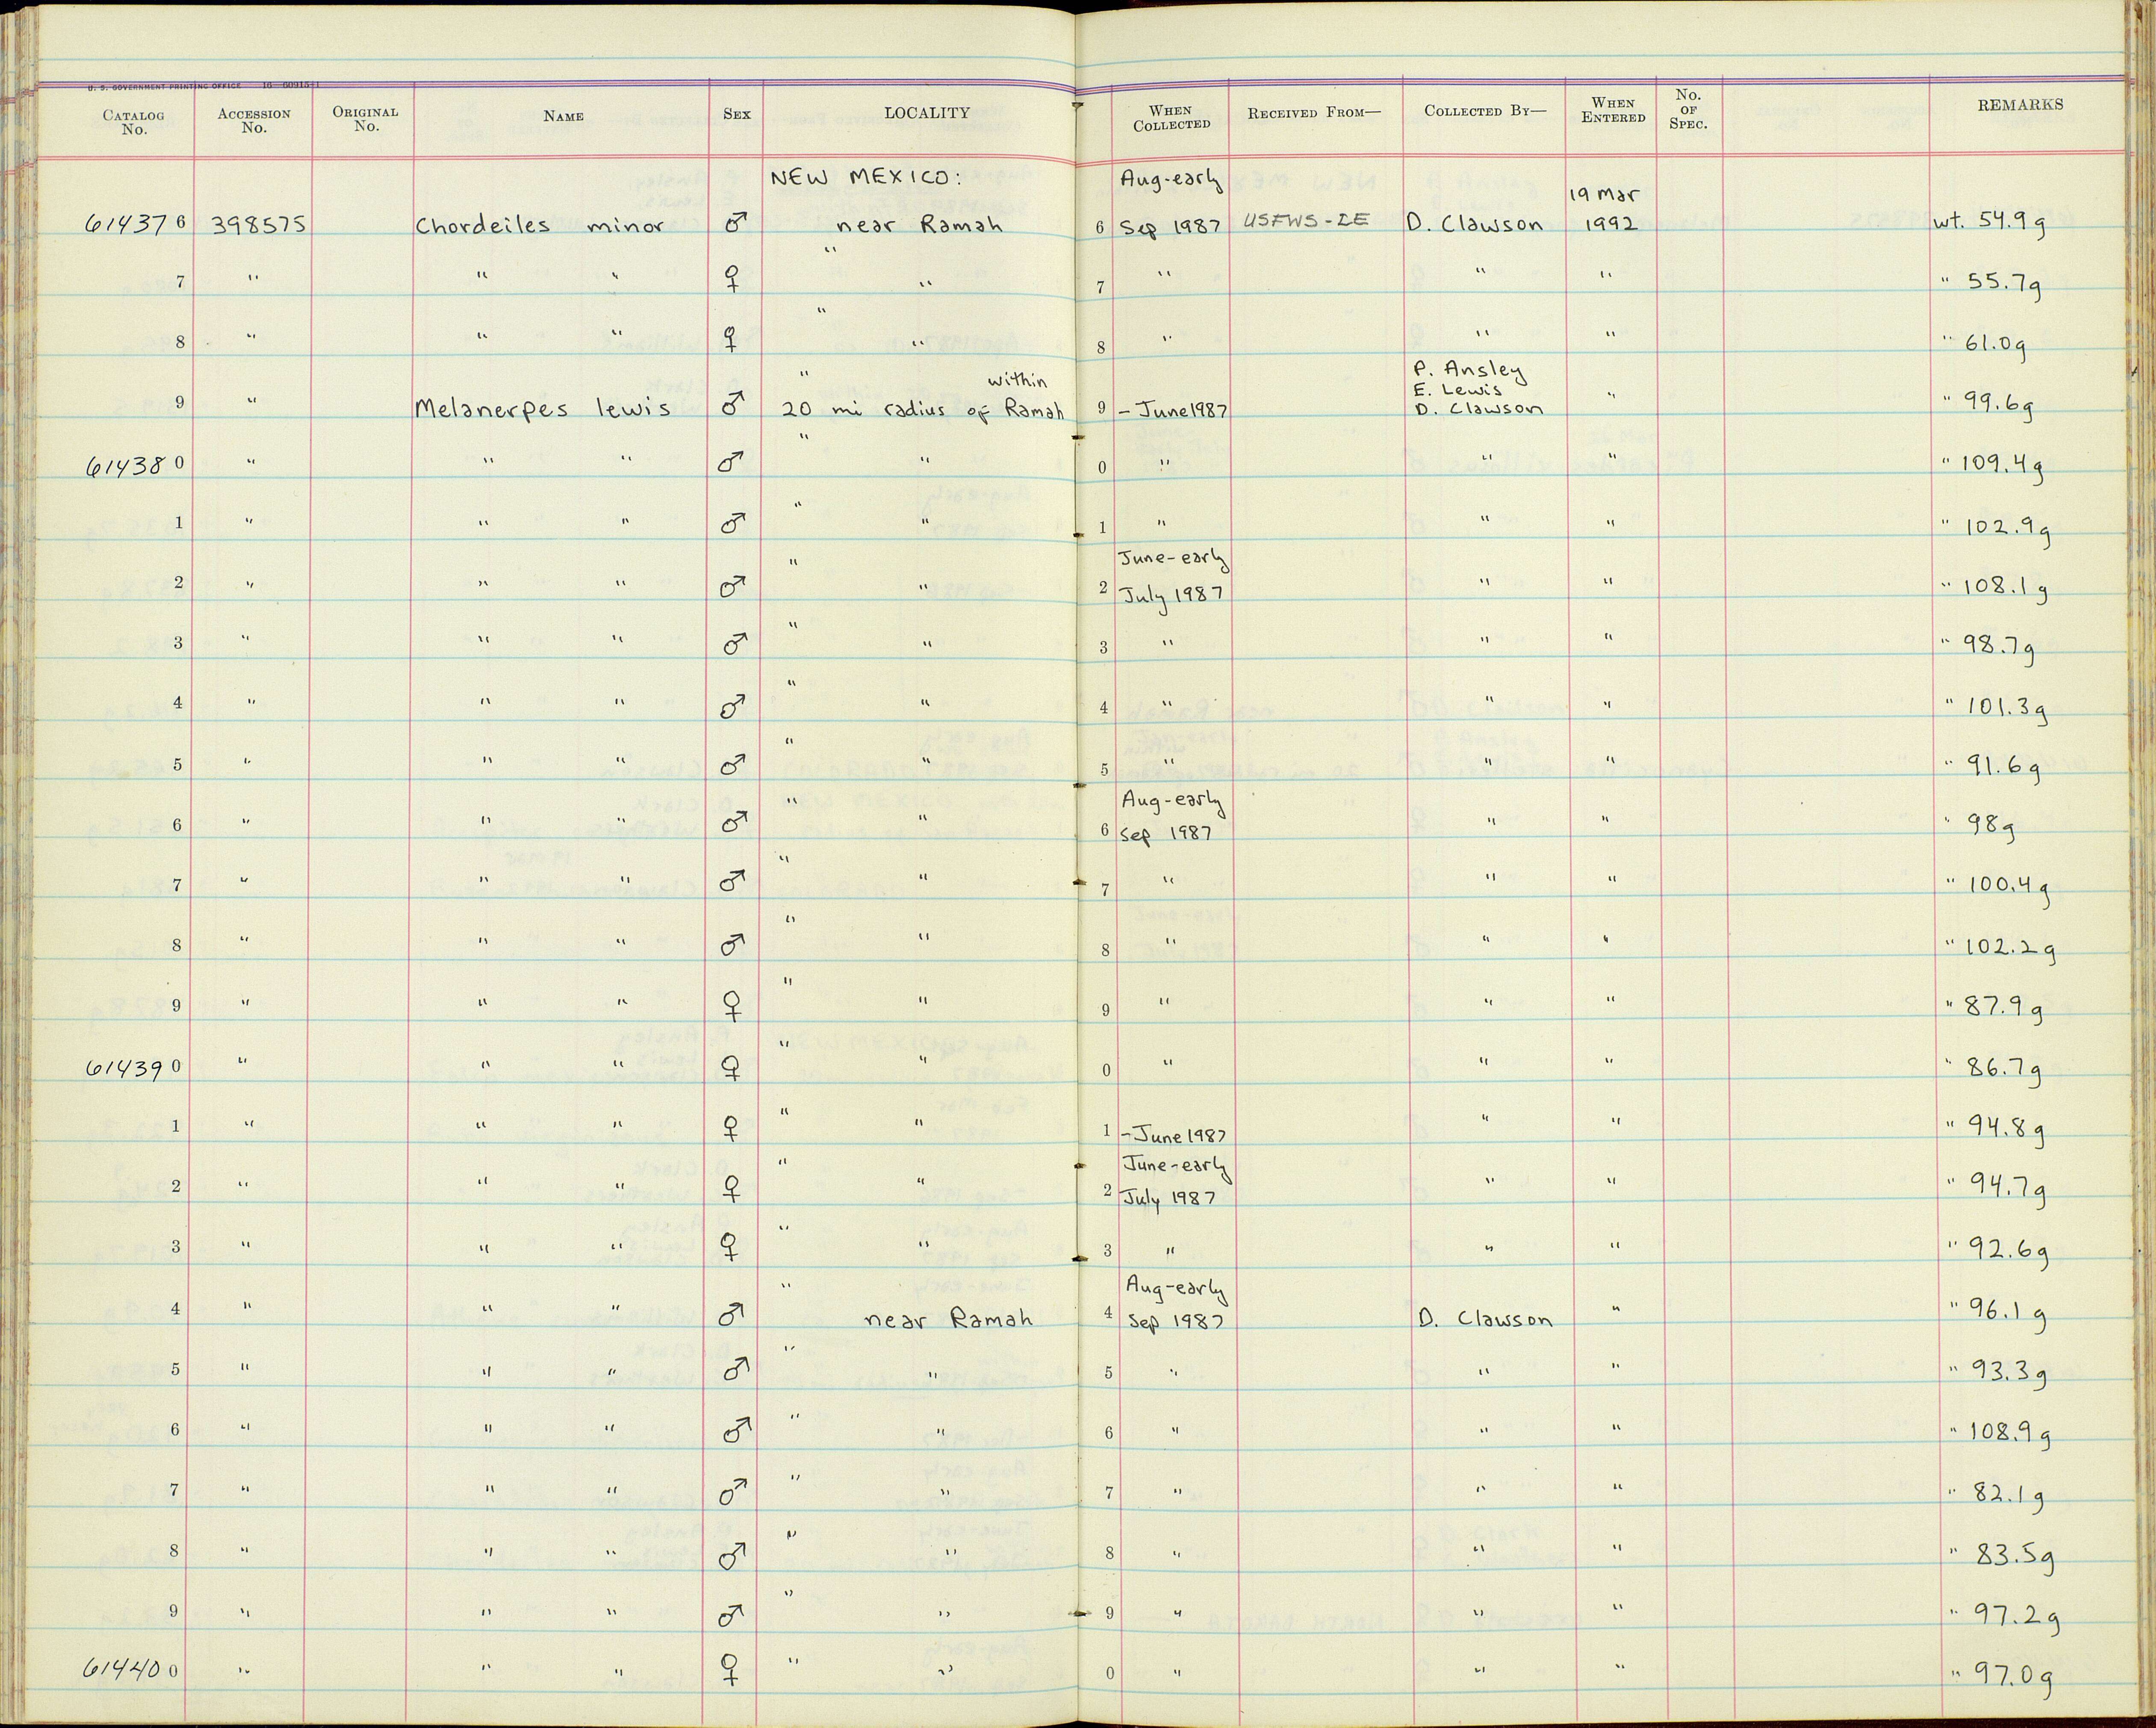 U. S. GOVERNMENT PRINTING OFFICE 16—60915-1
CATALOG No. ACCESSION No. ORIGINAL No. NAME SEX LOCALITY WHEN COLLECTED RECEIVED FROM— COLLECTED BY— WHEN ENTERED No. OF SPEC. REMARKS
NEW MEXICO: Aug-early 19 Mar
614376 398575 Chordeiles minor ♂ near Ramah 6 Sep 1987 USFWS-LE D. Clawson 1992 wt. 54.9g
7 " " " ♀ " " 7 " " " " 55.7g
8 " " " ♀ " " 8 " " " " 61.0g
" within P. Ansley
E. Lewis
9 " Melanerpes lewis ♂ 20 mi radius of Ramah 9 - June 1987 D. Clawson " " 99.6g
614380 " " " ♂ " " 0 " " " " 109.4g
1 " " " ♂ " " 1 " " " " 102.9g
June-early
2 " " " ♂ " " 2 July 1987 " " " 108.1g
3 " " " ♂ " " 3 " " " " 98.7g
4 " " " ♂ " " 4 " " " " 101.3g
5 " " " ♂ " " 5 " " " " 91.6g
Aug-early
6 " " " ♂ " " 6 Sep 1987 " " " 98g
7 " " " ♂ " " 7 " " " " 100.4g
8 " " " ♂ " " 8 " " " " 102.2g
9 " " " ♀ " " 9 " " " " 87.9g
614390 " " " ♀ " " 0 " " " " 86.7g
1 " " " ♀ " " 1 - June 1987 " " " 94.8g
June-early
2 " " " ♀ " " 2 July 1987 " " " 94.7g
3 " " " ♀ " " 3 " " " " 92.6g
Aug-early
4 " " " ♂ " near Ramah 4 Sep 1987 D. Clawson " " 96.1g
5 " " " ♂ " " 5 " " " " 93.3g
6 " " " ♂ " " 6 " " " " 108.9g
7 " " " ♂ " " 7 " " " " 82.1g
8 " " " ♂ " " 8 " " " " 83.5g
9 " " " ♂ " " 9 " " " " 97.2g
614400 " " " ♀ " " 0 " " " " 97.0g